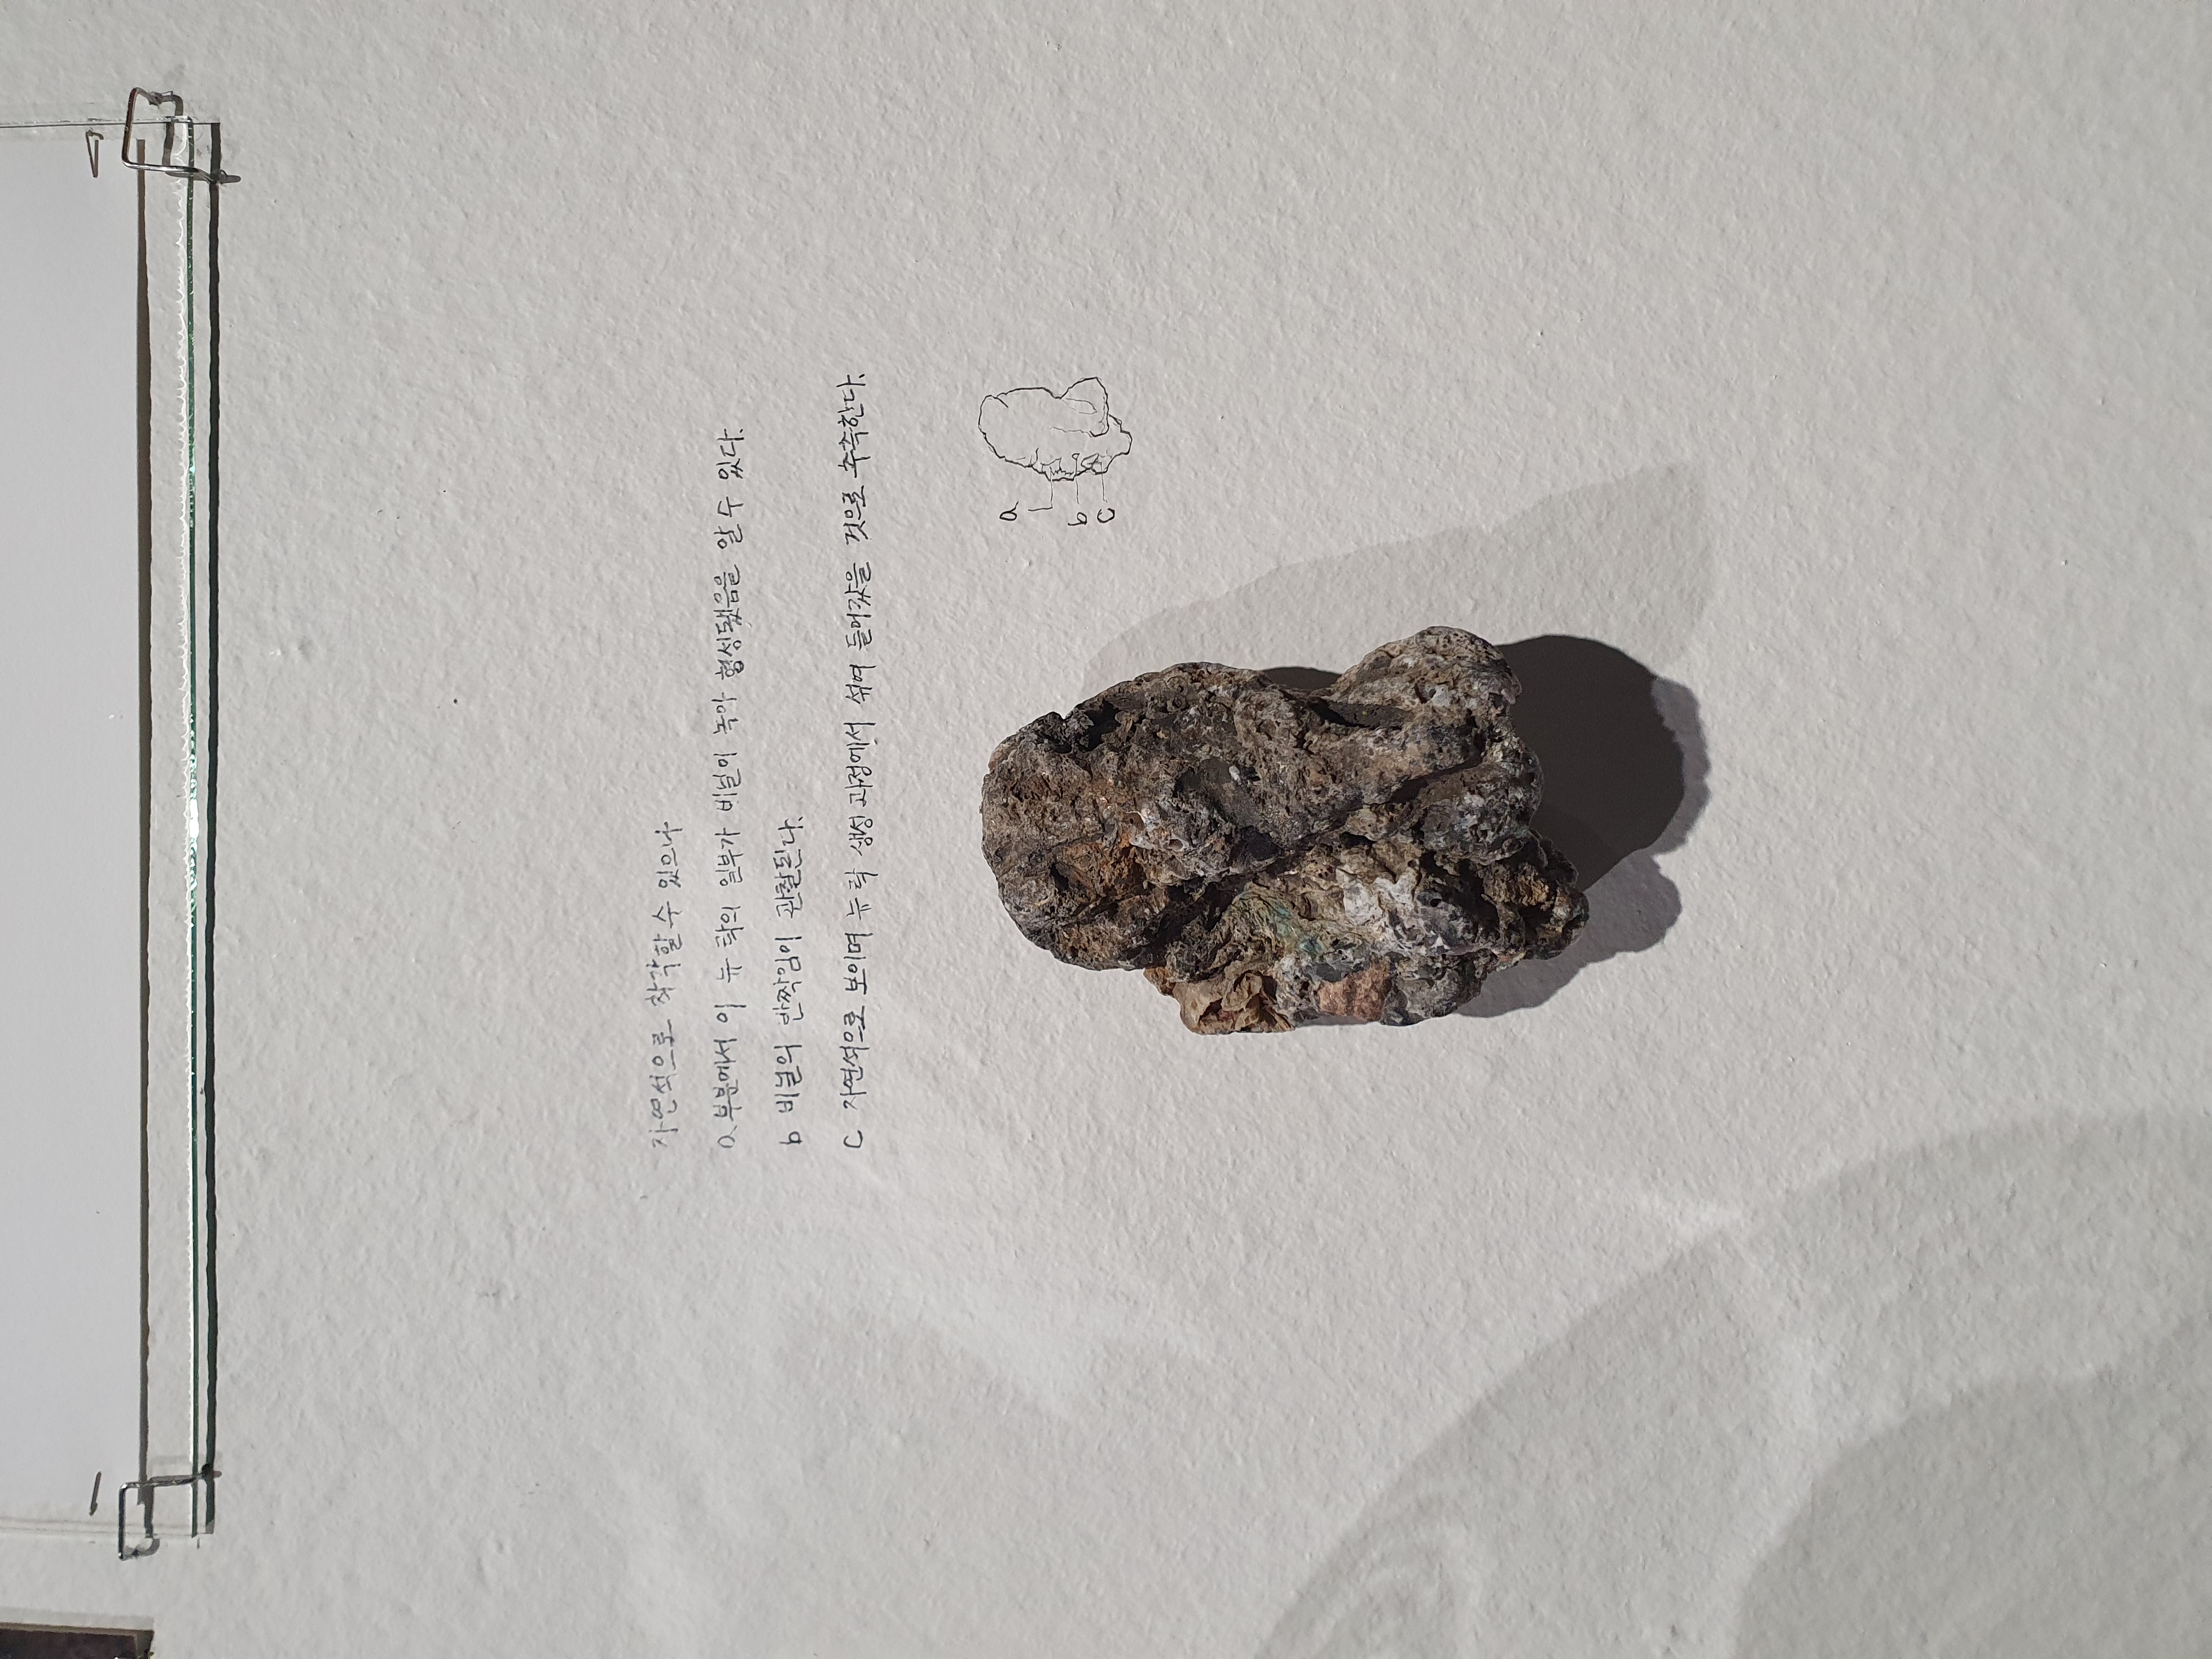 자연석으로 착각할 수 있으나
a 부분에서 이 뉴 락의 일부가 비닐이 녹아 형성됐음을 알 수 있다.
b 비닐의 반짝임이 관찰된다.
c 자연석으로 보이며 뉴 락 생성 과정에서 섞여 들어갔을 것으로 추측한다.
a
b
c